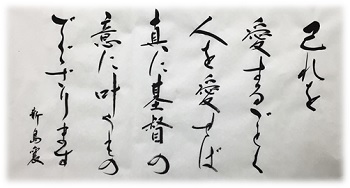 己れを
愛するごとく
人を愛せば
真に基督の
意に叶うもの
でござります
新島襄